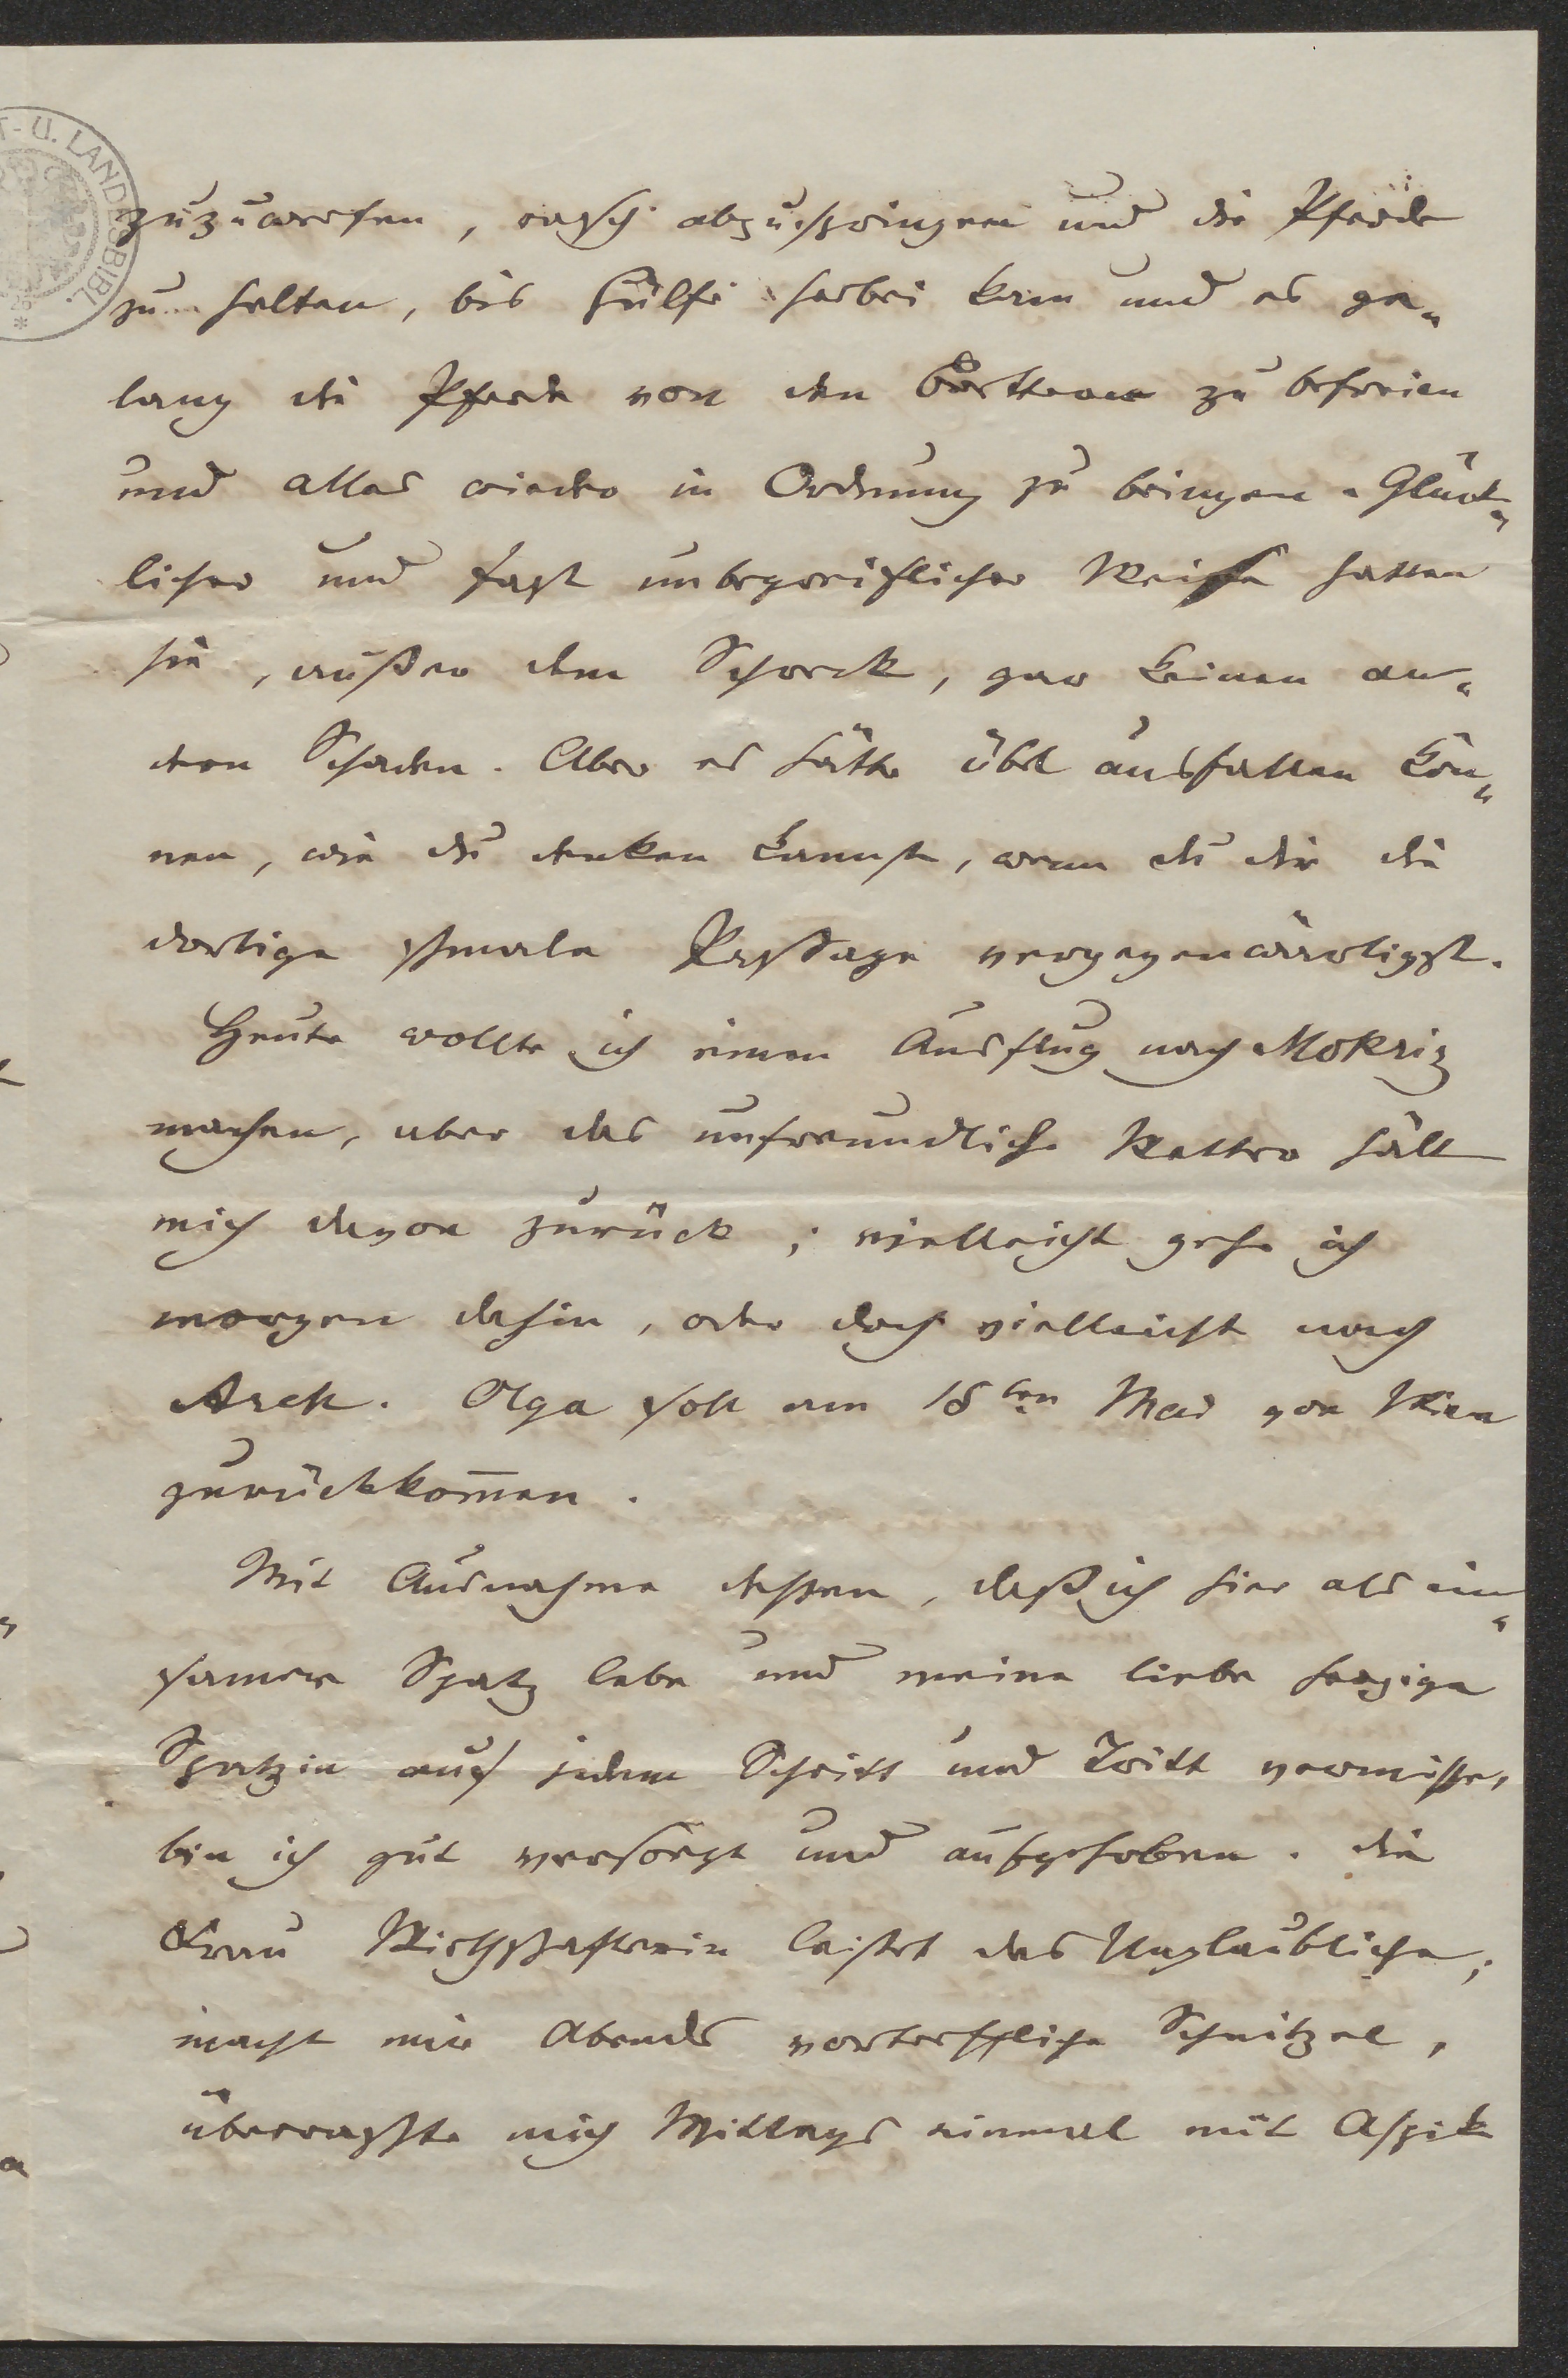 T- U. LANDESBIBL.
*
zuzuwerfen, rasch abzuspringen und die Pferde
zu halten, bis Hülfe herbei kam und es ge„
lang die Pferde von den zu befreien
und alles wieder in Ordnung zu bringen. Glück„
licher und fast unbegreiflicher Weise hatten
sie, außer dem Schreck, gar keinen an„
dern Schaden. Aber es hätte übel ausfallen kön„
nen, wie du denken kannst, wenn du dir die
dortige schmale Passage vergegenwärtigst.
Heute wollte ich einen Ausflug nach Mokriz
machen, aber das unfreundliche Wetter hält
mich davon zurück; vielleicht gehe ich
morgen dahin, oder doch vielleicht nach
Arch. Olga soll am 18ten Mai von Wien
zurückkom̄en.
Mit Ausnahme dessen, daß ich hier als ein„
samer Spatz lebe und meine liebe herzige
Spatzin auf jedem Schritt und Tritt vermisse,
bin ich gut versorgt und aufgehoben. Die
Frau Wirthschafterin leistet das Unglaubliche;
macht mir Abends vortreffliche Schnitzel,
überraschte mich Mittags einmal mit Aspik